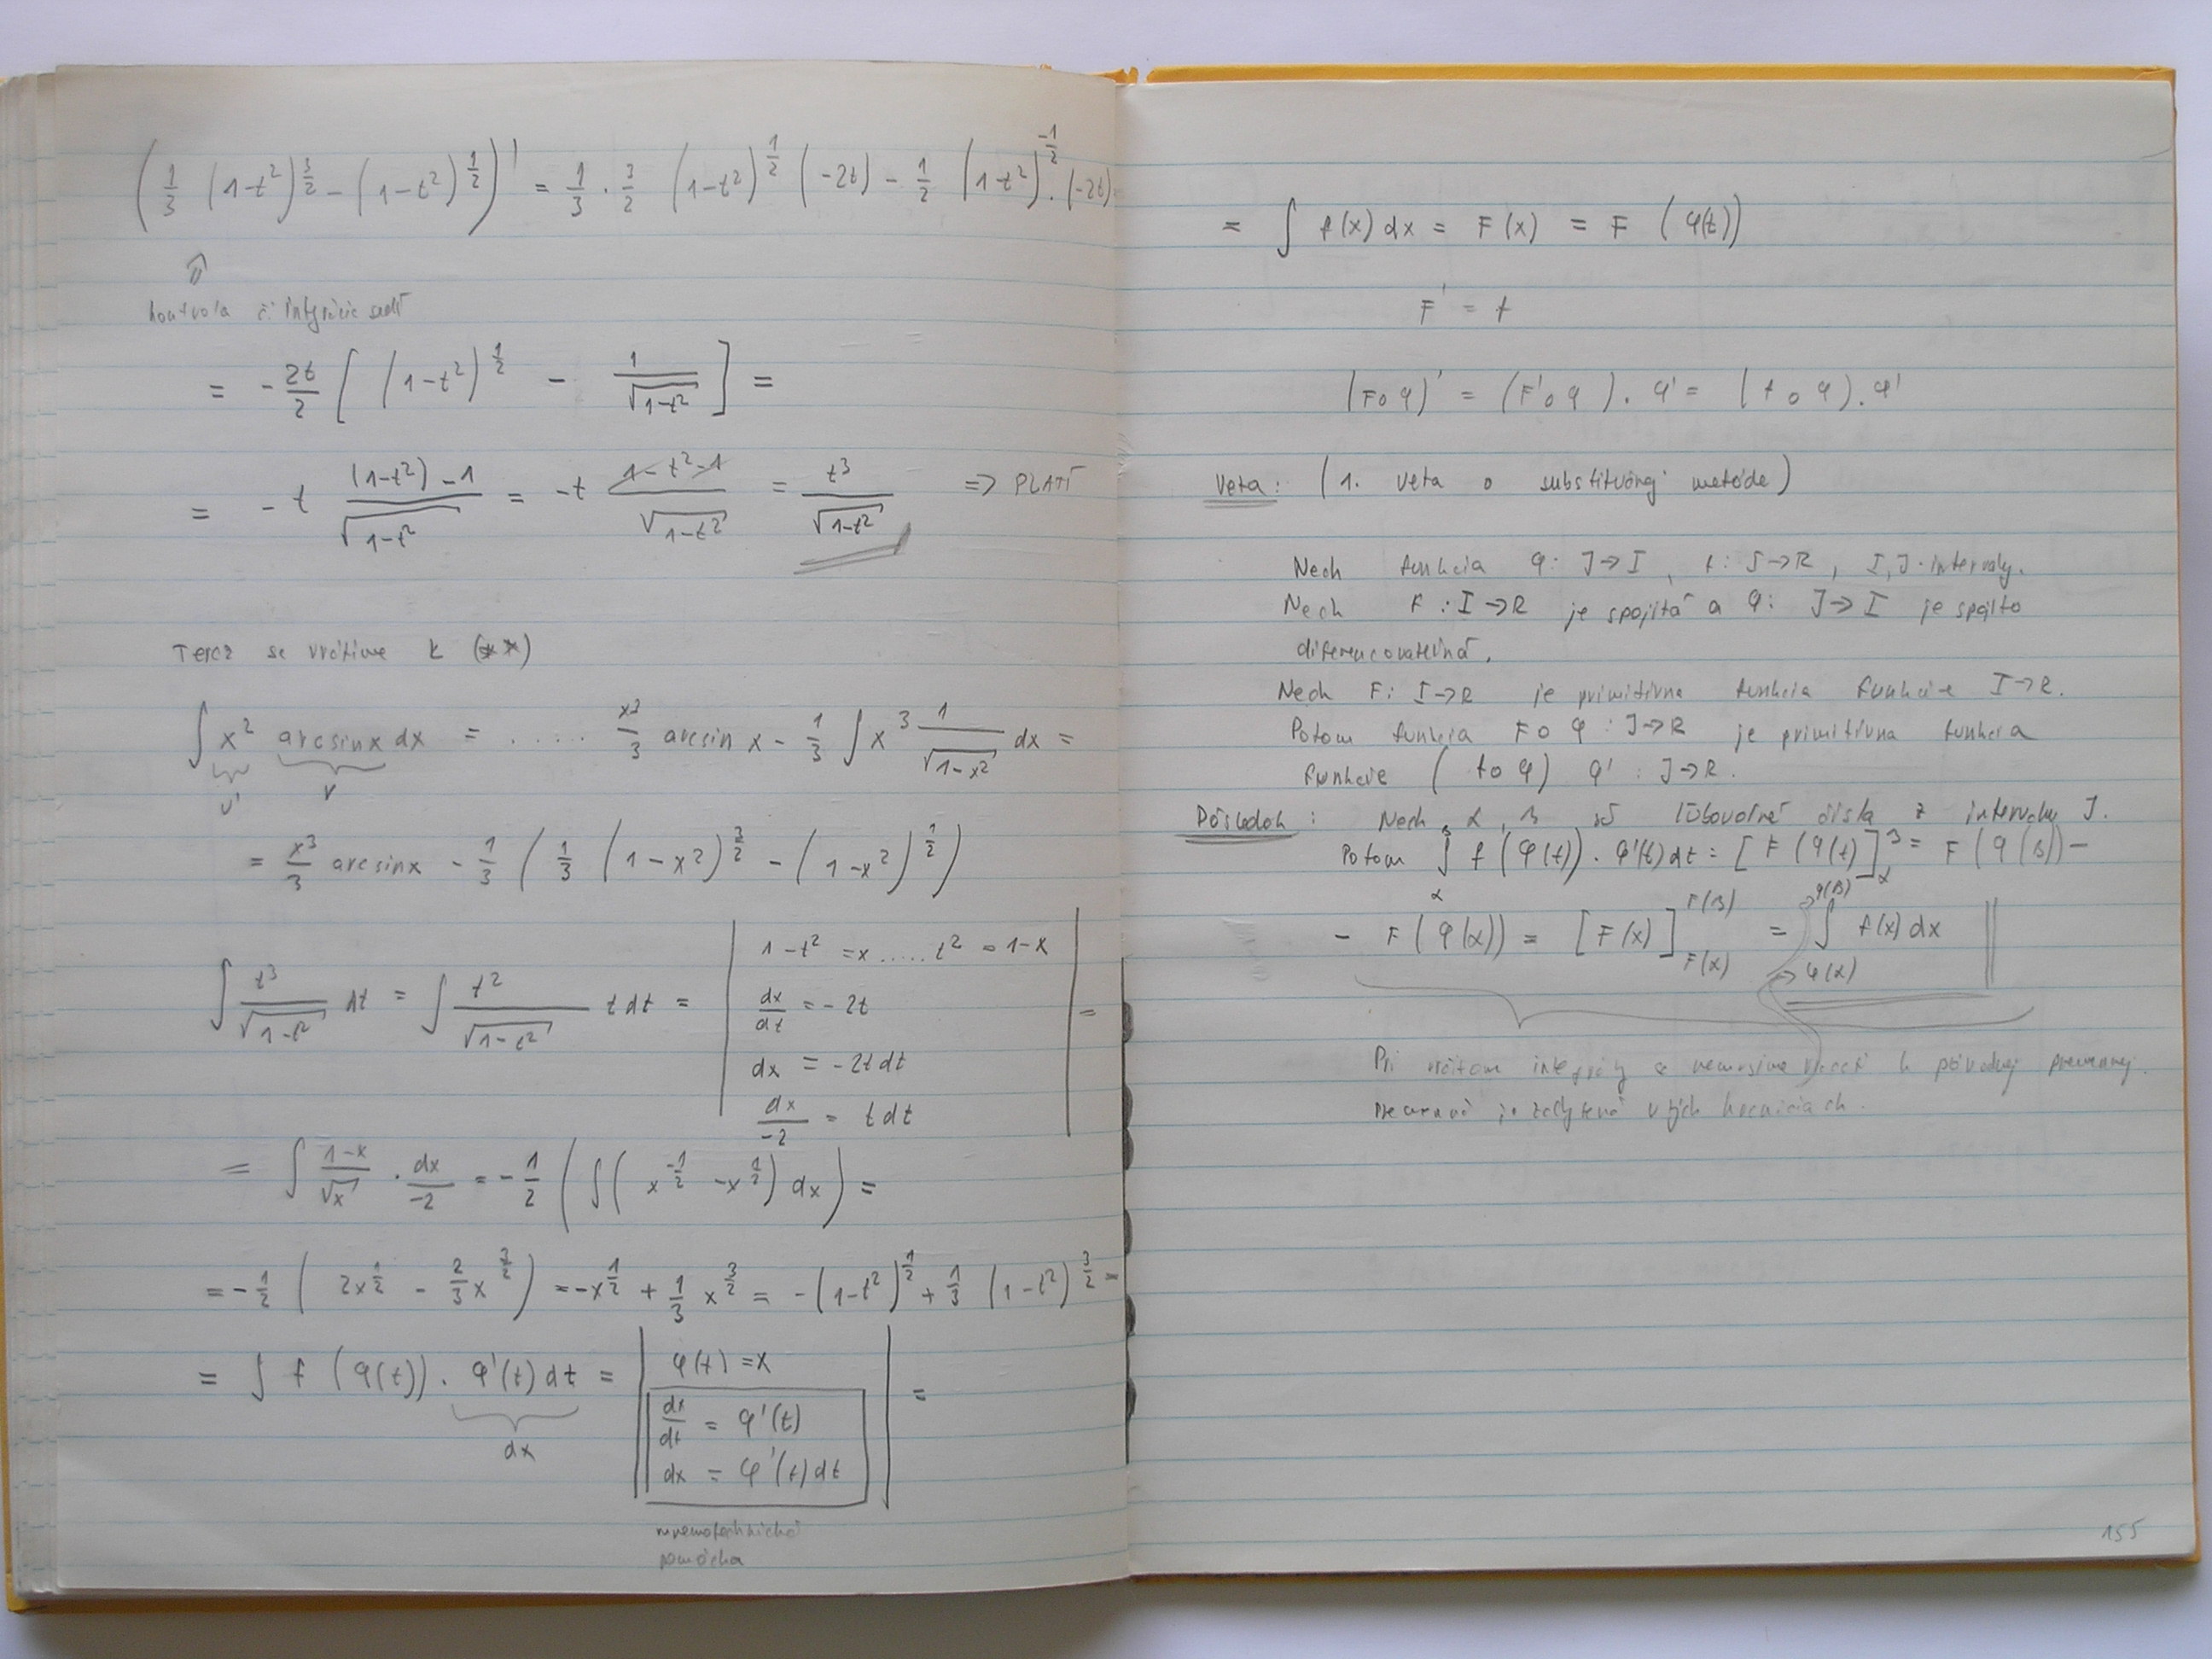 (1/3 (1-t²)^(3/2) - (1-t²)^(1/2))' = 1/3 · 3/2 (1-t²)^(1/2) (-2t) - 1/2 (1-t²)^(-1/2) · (-2t) =
⇑
kontrola či integrácia sedí
= - 2t/2 [ (1-t²)^(1/2) - 1/√(1-t²) ] =
= -t ((1-t²)-1)/√(1-t²) = -t (1-t²-1)/√(1-t²) = t³/√(1-t²) => PLATÍ
Teraz sa vrátime k (**)
∫ x² arcsinx dx = ..... x³/3 arcsin x - 1/3 ∫ x³ 1/√(1-x²) dx =
u' v
= x³/3 arcsinx - 1/3 ( 1/3 (1-x²)^(3/2) - (1-x²)^(1/2) )
∫ t³/√(1-t²) dt = ∫ t²/√(1-t²) t dt = | 1-t² = x ..... t² = 1-x
dx/dt = -2t | =
dx = -2t dt
dx/-2 = t dt
= ∫ (1-x)/√x · dx/-2 = - 1/2 ( ∫ ( x^(-1/2) - x^(1/2) ) dx ) =
= - 1/2 ( 2x^(1/2) - 2/3 x^(3/2) ) = -x^(1/2) + 1/3 x^(3/2) = -(1-t²)^(1/2) + 1/3 (1-t²)^(3/2) =
= ∫ f (φ(t)) · φ'(t) dt = | φ(t) = x | =
dx
dx/dt = φ'(t)
dx = φ'(t) dt
mnemotechnická
pomôcka
= ∫ f(x) dx = F(x) = F (φ(t))
F' = f
(F∘φ)' = (F'∘φ) · φ' = (f∘φ) · φ'
Veta: (1. veta o substitučnej metóde)
Nech funkcia φ: J→I, f: J→R, I, J - intervaly.
Nech f: I→R je spojitá a φ: J→I je spojito
diferencovateľná.
Nech F: I→R je primitívna funkcia funkcie I→R.
Potom funkcia F∘φ: J→R je primitívna funkcia
funkcie (f∘φ) φ': J→R.
Dôsledok: Nech α, β sú ľubovoľné čísla z intervalu J.
Potom ∫_α^β f (φ(t)) · φ'(t) dt = [F (φ(t)]_α^β = F (φ(β)) -
- F (φ(α)) = [F(x)]_F(α)^F(β) = ∫_φ(α)^φ(β) f(x) dx
Pri určitom integrály sa nemusíme vracať k pôvodnej premennej.
je zachytená v tých hraniciach.
155